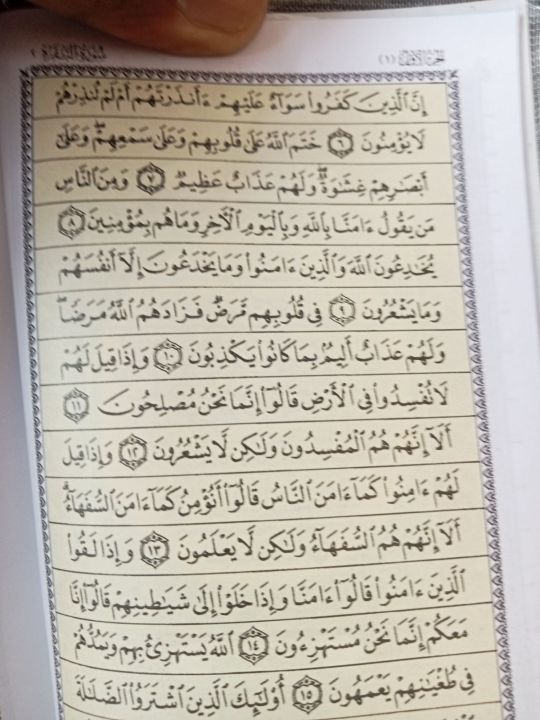 سورة البقرة ٢
الجزء الأول (١)
إِنَّ ٱلَّذِينَ كَفَرُوا۟ سَوَآءٌ عَلَيْهِمْ ءَأَنذَرْتَهُمْ أَمْ لَمْ تُنذِرْهُمْ
لَا يُؤْمِنُونَ ٦ خَتَمَ ٱللَّهُ عَلَىٰ قُلُوبِهِمْ وَعَلَىٰ سَمْعِهِمْ ۖ وَعَلَىٰٓ
أَبْصَٰرِهِمْ غِشَٰوَةٌ ۖ وَلَهُمْ عَذَابٌ عَظِيمٌ ٧ وَمِنَ ٱلنَّاسِ
مَن يَقُولُ ءَامَنَّا بِٱللَّهِ وَبِٱلْيَوْمِ ٱلْءَاخِرِ وَمَا هُم بِمُؤْمِنِينَ ٨
يُخَٰدِعُونَ ٱللَّهَ وَٱلَّذِينَ ءَامَنُوا۟ وَمَا يَخْدَعُونَ إِلَّآ أَنفُسَهُمْ
وَمَا يَشْعُرُونَ ٩ فِى قُلُوبِهِم مَّرَضٌ فَزَادَهُمُ ٱللَّهُ مَرَضًا ۖ
وَلَهُمْ عَذَابٌ أَلِيمٌۢ بِمَا كَانُوا۟ يَكْذِبُونَ ١٠ وَإِذَا قِيلَ لَهُمْ
لَا تُفْسِدُوا۟ فِى ٱلْأَرْضِ قَالُوٓا۟ إِنَّمَا نَحْنُ مُصْلِحُونَ ١١
أَلَآ إِنَّهُمْ هُمُ ٱلْمُفْسِدُونَ وَلَٰكِن لَّا يَشْعُرُونَ ١٢ وَإِذَا قِيلَ
لَهُمْ ءَامِنُوا۟ كَمَآ ءَامَنَ ٱلنَّاسُ قَالُوٓا۟ أَنُؤْمِنُ كَمَآ ءَامَنَ ٱلسُّفَهَآءُ ۗ
أَلَآ إِنَّهُمْ هُمُ ٱلسُّفَهَآءُ وَلَٰكِن لَّا يَعْلَمُونَ ١٣ وَإِذَا لَقُوا۟
ٱلَّذِينَ ءَامَنُوا۟ قَالُوٓا۟ ءَامَنَّا وَإِذَا خَلَوْا۟ إِلَىٰ شَيَٰطِينِهِمْ قَالُوٓا۟ إِنَّا
مَعَكُمْ إِنَّمَا نَحْنُ مُسْتَهْزِءُونَ ١٤ ٱللَّهُ يَسْتَهْزِئُ بِهِمْ وَيَمُدُّهُمْ
فِى طُغْيَٰنِهِمْ يَعْمَهُونَ ١٥ أُو۟لَٰٓئِكَ ٱلَّذِينَ ٱشْتَرَوُا۟ ٱلضَّلَٰلَةَ